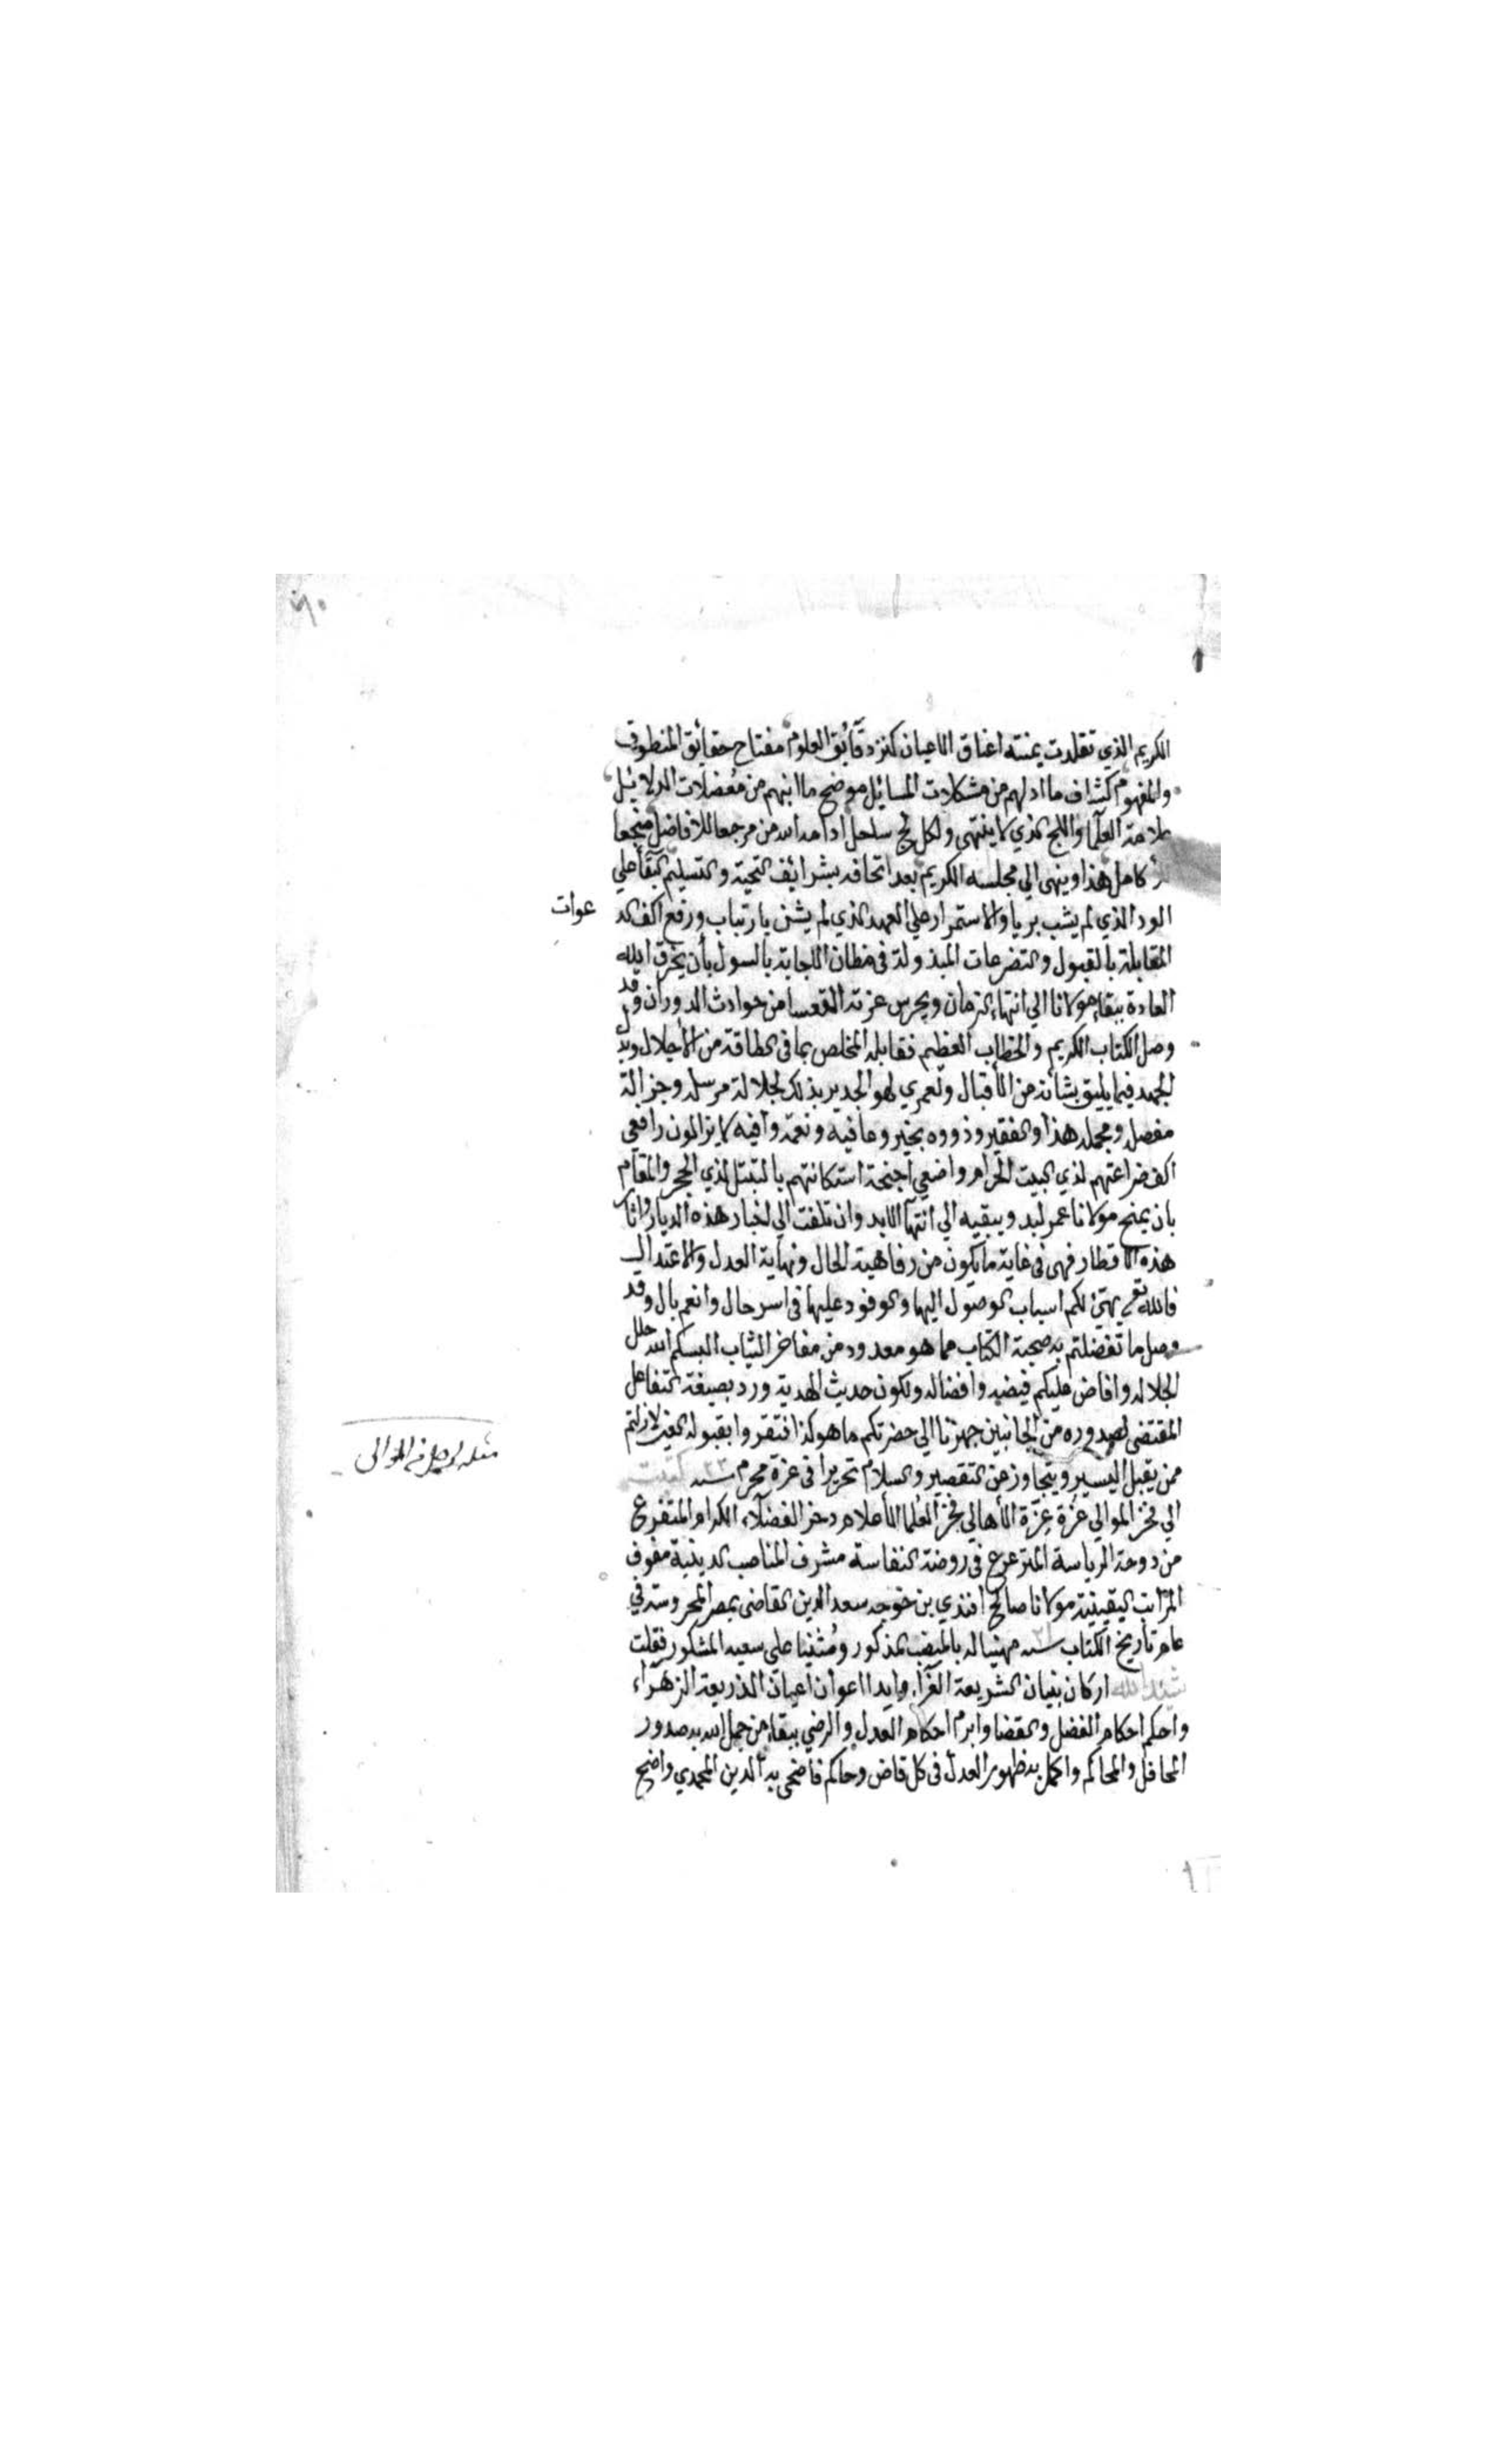 ٦٠
الكريم الذي تقلدت بمنته اعناق الاعيان كنز دقائق العلوم مفتاح حقائق المنطوق
والمفهوم كشاف ما ادلهم من مشكلات المسائل موضح ما ابنهم من معضلات الدلائل
علامة العلما واللج الذي لا ينتهى ولكل لج ساحل ادامه الله من مرجعا للافاضل منجعا
كامل هذا وينهى الي مجلسه الكريم بعد اتحافه بشرائف التحية والتسليم البقا على
الود الذي لم يشب بريا والاستمرار على العهد الذي لم يشن بارتياب ورفع اكف الد
عوات
المقابلة بالقبول والتضرعات المبذولة فى مظان الاجابة بالسول بأن يخرق الله
العادة ببقاء مولانا الي انتهاء الزمان ويحرس عزته القعسا من حوادث الدوران وقد
وصل الكتاب الكريم والخطاب العظيم فقابله المخلص بما فى الطاقة من الأجلال وبذل
الجهد فيما يليق بشأنه من الأقبال ولعمري لهو الجدير بذلك لجلالة مرسله وجزالة
مفصله ومجمله هذا والفقير وذووه بخير وعافيه ونعمة وافيه لا يزالون رافعي
اكف ضراعتهم لذي البيت الحرام واضعي أجنحة استكانتهم بالتبتل لذي الحجر والمقام
بان يمنح مولانا عمر لبد ويبقيه الي انتهآ الابد وان تلفت الي اخبار هذه الديار واثار
هذه الاقطار فهى فى غاية ما يكون من رفاهية الحال ونهاية العدل والاعتدال
فالله تعـ يهيئ لكم اسباب الوصول اليها والوفود عليها فى اسر حال وانعم بال وقد
وصل ما تفضلتم به صحبة الكتاب مما هو معدود من مفاخر الثياب البسكم الله حلل
الجلاله وافاض عليكم فيضه وافضاله ولكون حديث الهدية ورد بصيغة التفاعل
المقتضى لصدوره من الجانبين جهزنا الي حضرتكم ما هو كذا فتقروا بقبوله العين لا زلتم
ممن يقبل اليسير ويتجاوز عن التقصير والسلام تحريرا فى غرة محرم سنه ٢٣ كتبت
مثله لرجل من الموالى
الي فخر الموالي غرة عزة الأهالي فخر العلما الأعلام دخر الفضلآء الكرام المتفرع
من دوحة الرياسة المترعرع فى روضة النفاسة مشرف المناصب الدينية مفوف
المراتب اليقينية مولانا صالح افندي بن خوجه سعد الدين القاضى بمصر المحروسة في
عام تاريخ الكتاب سنه ٢١ مهنيا له بالمنصب المذكور ومثنيا على سعيه المشكور فقلت
شيد الله اركان بنيان الشريعة الغرآء وايد اعوان اعيان الذريعة الزهرآء
واحكم احكام الفضل والقضا وابرم احكام العدل والرضي ببقاء من جمل الله به صدور
المحافل والمحاكم واكمل به ظهور العدل فى كل قاض وحاكم فأضحى به الدين المحمدي واضح